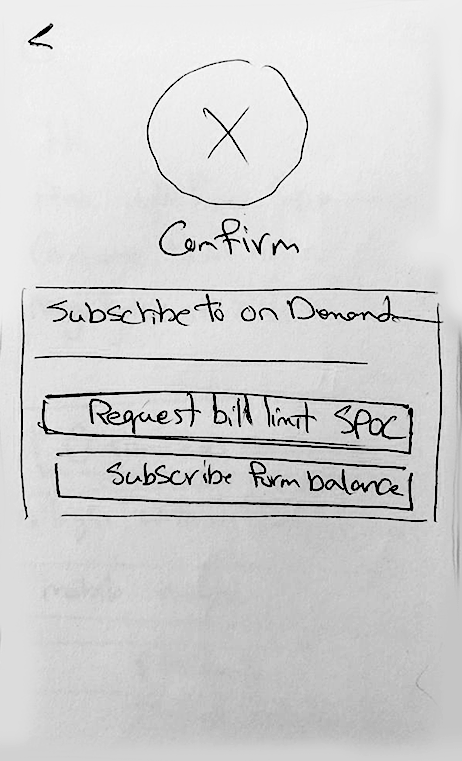 <
X
Confirm
Subscribe to on Demand
Request bill limit SPOC
Subscribe form balance